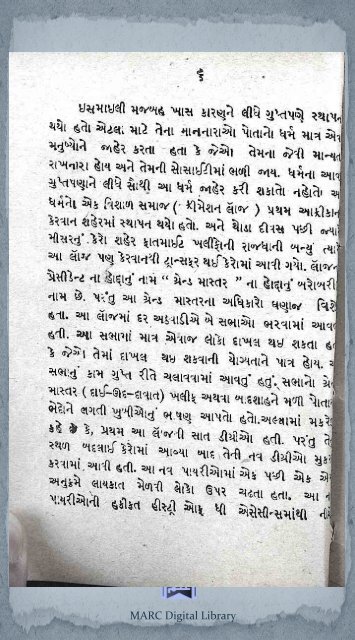 ૬
ઇસમાઇલી મજબહ ખાસ કારણને લીધે ગુપ્તપણે સ્થાપન
થયો હતો એટલા માટે તેના માનનારાઓ પોતાનો ધર્મ માત્ર એવા
મનુષ્યોને જાહેર કરતા હતા કે જેઓ તેમના જેવી માન્યતા
રાખનારા હોય અને તેમની સોસાઈટીમાં ભળી જાય. ધર્મના આવા
ગુપ્તપણાને લીધે સૌથી આ ધર્મ જાહેર કરી શકાતો નહોતો આ
ધર્મનો એક વિશાળ સમાજ ( ફ્રીમેશન લૉજ ) પ્રથમ આફ્રીકાના
કેરવાન શહેરમાં સ્થાપન થયો હતો. અને થોડા દીવસ પછી જ્યારે
મીસરનું કેરો શહેર ફાતમાઈટ ખલીફોની રાજધાની બન્યુ ત્યારે
આ લૉજ પણ કેરવાનથી ટ્રાન્સફર થઈ કેરોમાં આવી ગયો. લૉજના
પ્રેસીડેન્ટ ના હોદ્દાનું નામ " ગ્રેન્ડ માસ્તર " ના હોદ્દાનું બરોબરી
નામ છે. પરંતુ આ ગ્રેન્ડ માસ્તરના અધિકારો ઘણાજ વિશે
હતા. આ લૉજમાં દર અઠવાડીએ બે સભાઓ ભરવામાં આવતી
હતી. આ સભામાં માત્ર એવાજ લોકો દાખલ થઈ શકતા હતા
કે જેઓ તેમાં દાખલ થઈ શકવાની યોગ્યતાને પાત્ર હોય. આ
સભાનું કામ ગુપ્ત રીતે ચલાવવામાં આવતું હતું. સભાનો ગ્રેન્ડ
માસ્તર ( દાઈ-ઉદ-દાવાત ) ખલીફ અથવા બાદશાહને મળી પોતાના
ભેદોને લગતી ખુબીઓનું ભાષણ આપતો હતો. અલ્લામાં મકરેઝી
કહે છે કે, પ્રથમ આ લૉજની સાત ડીગ્રીઓ હતી. પરંતુ તેનું
સ્થળ બદલાઈ કેરોમાં આવ્યા બાદ તેની નવ ડીગ્રીઓ મુકરર
કરવામાં આવી હતી. આ નવ પાયરીઓમાં એક પછી એક એમ
અનુક્રમે લાયકાત મેળવી લોકો ઉપર ચઢતા હતા. આ નવ
પાયરીઓની હકીકત હીસ્ટ્રી ઓફ ધી એસેસીન્સમાંથી નીચે
MARC Digital Library